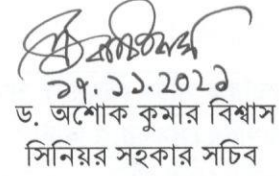 ১৭.১১.২০২১
ড. অশোক কুমার বিশ্বাস
সিনিয়র সহকার সচিব